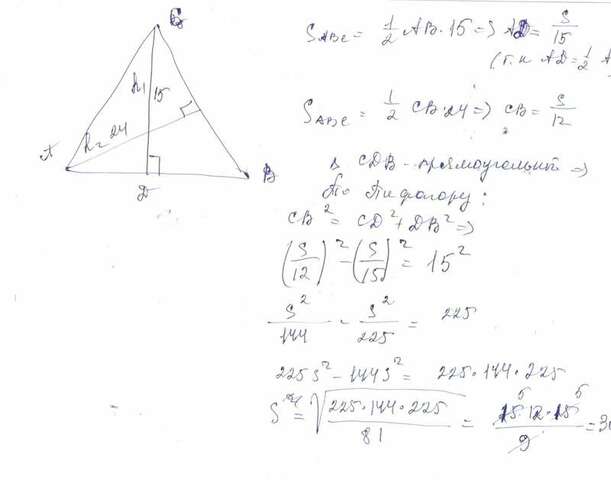 C
h₁ 15
h₂ 24
A
D
B
S ABC = 1/2 AB·15 => AD = S/15
(т.к AD = 1/2 A
S ABC = 1/2 CB·24 => CB = S/12
Δ CDB - прямоугольный =>
По Пифагору:
CB² = CD² + DB² =>
(S/12)² - (S/15)² = 15²
S²/144 - S²/225 = 225
225S² - 144S² = 225·144·225
S = √(225·144·225/81) = 15·12·15/9 = 30
5 5